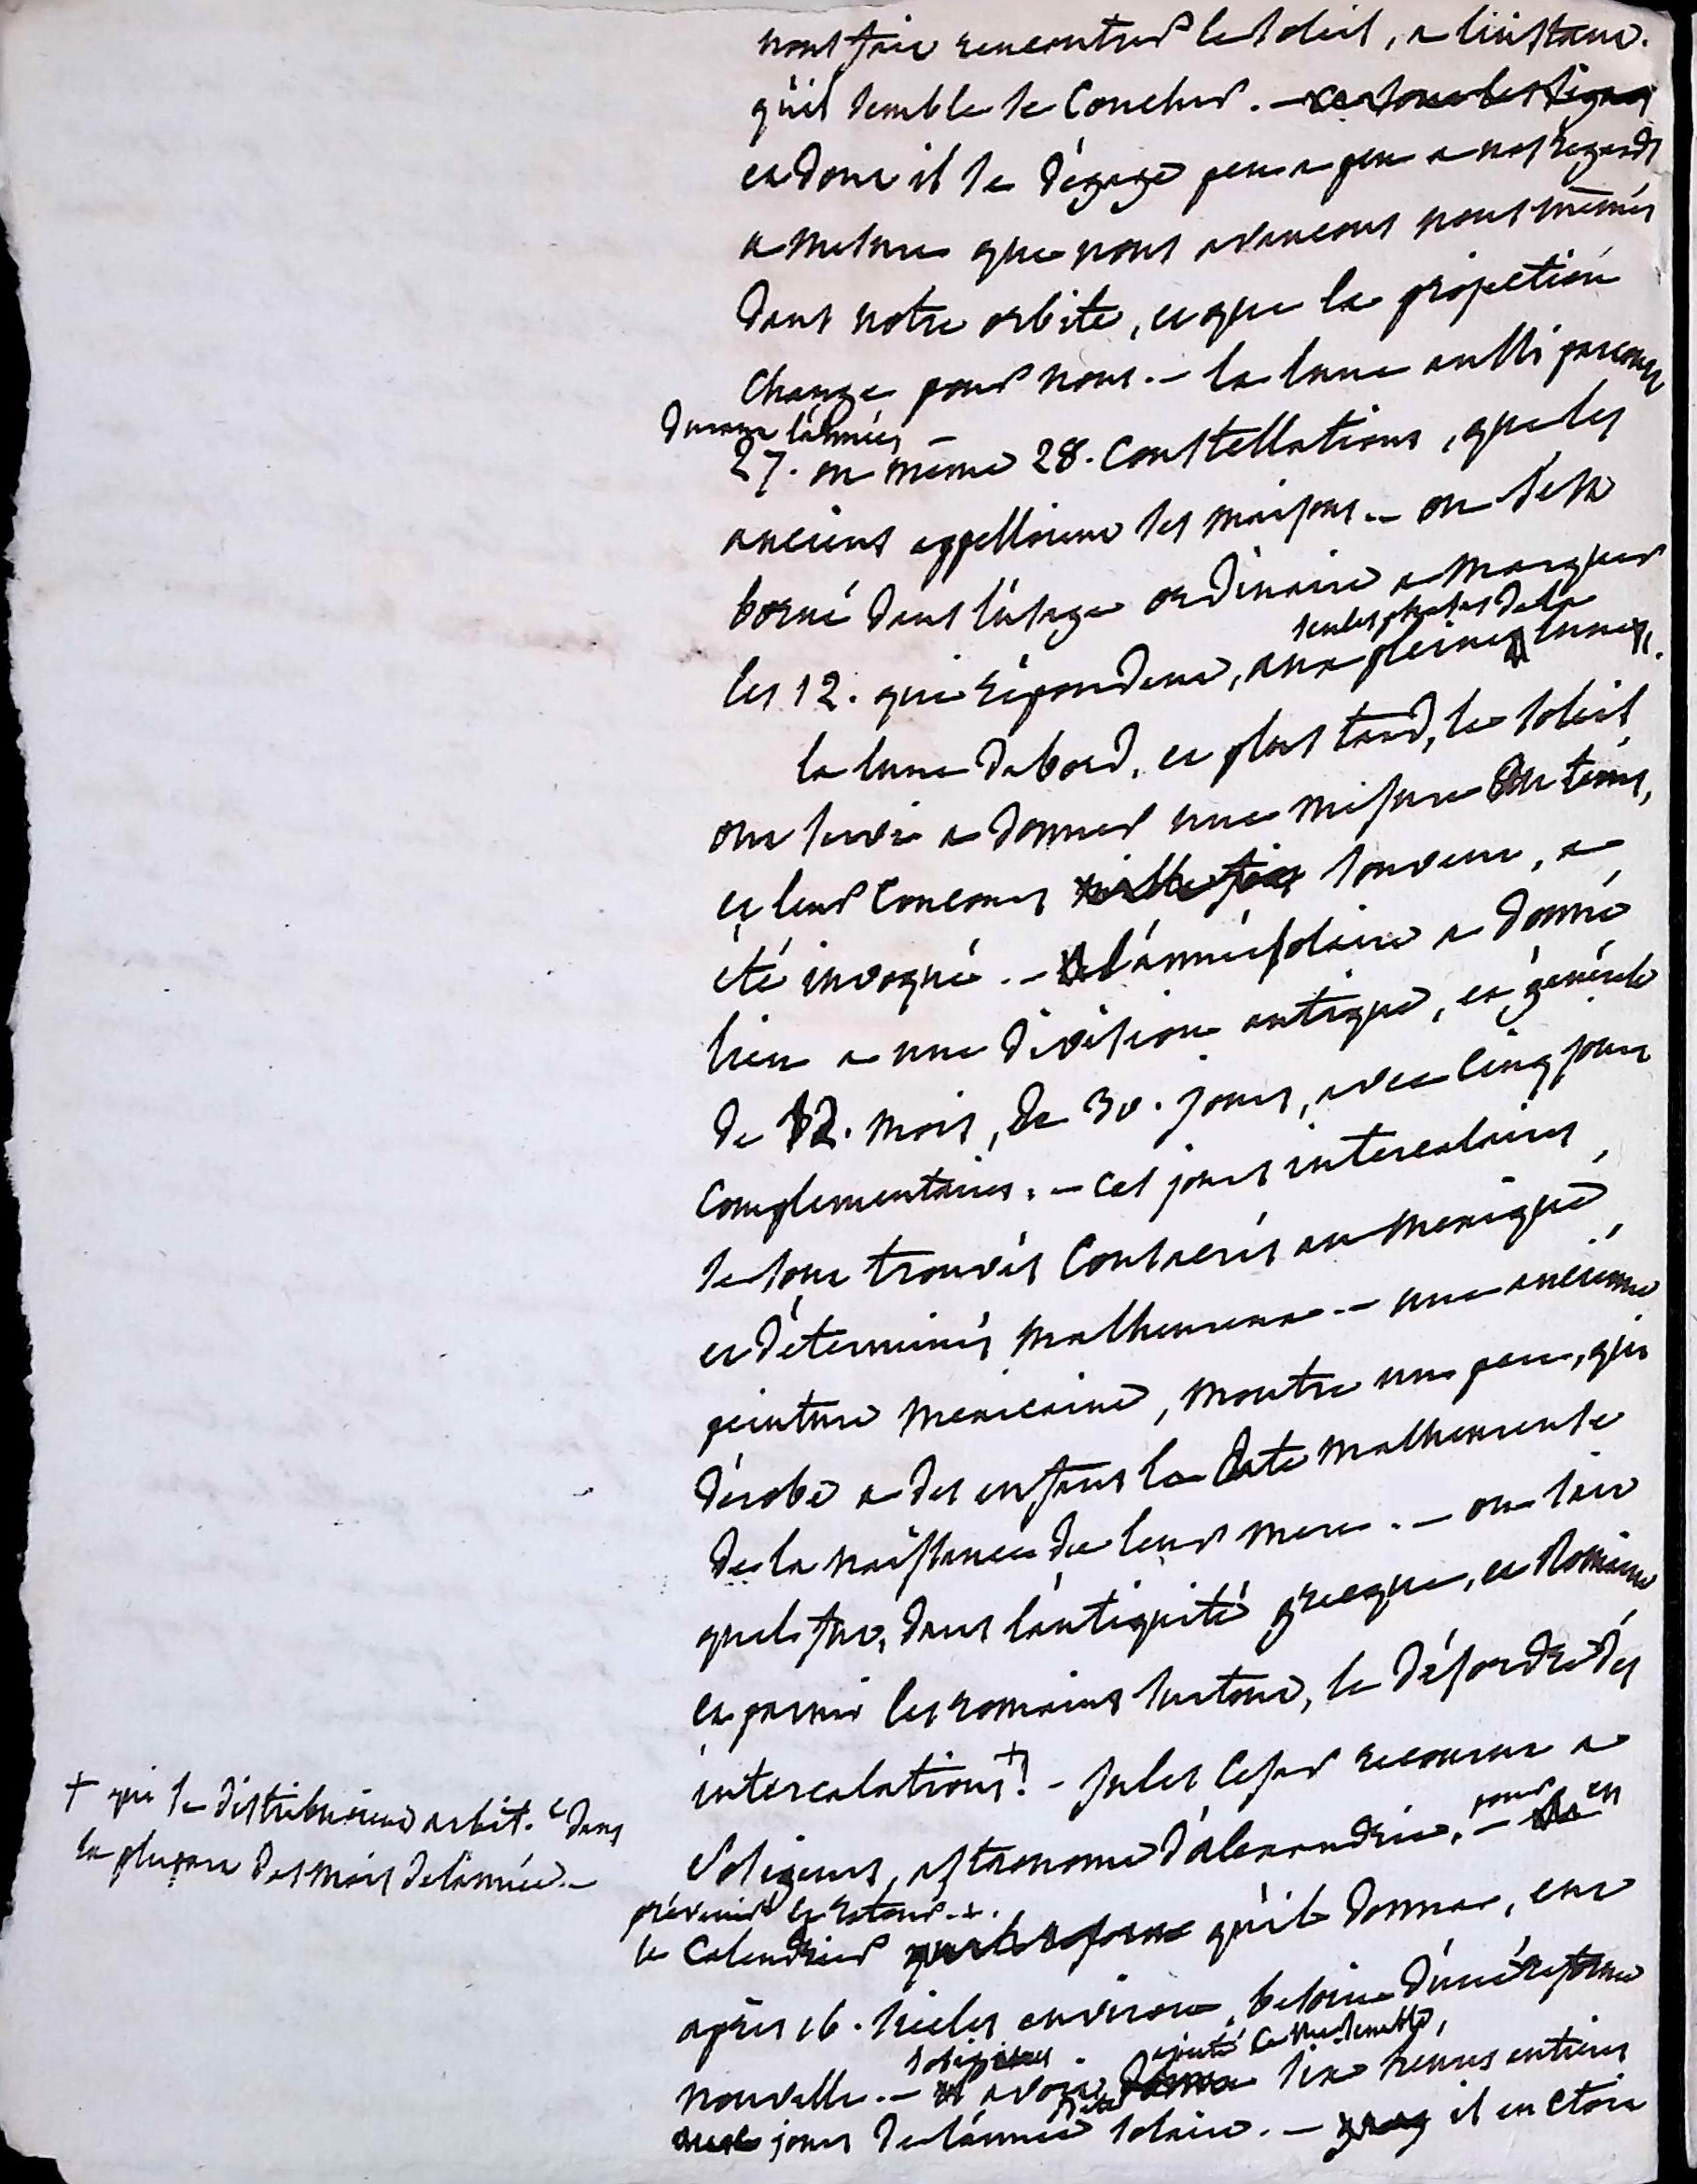 nous fait rencontrer le soleil, a l'instant
qu'il semble se coucher. - ce sont les signes
et dont il se dégage peu a peu a nos regards
a mesure que nous avancons nous mêmes
dans notre orbite, et que la projection
change pour nous. - la lune aussi parcourt
durant l'année, -
27. ou même 28. constellations, que les
anciens appelloient ses maisons. - on s'est
borné dans l'usage ordinaire a marquer
les 12. qui répondent, aux pleines lunes.
seules phases de la
la lune d'abord, et plus tard, le soleil,
ont servi a donner une mesure du tems,
et leur concours mille fois souvent, a
été invoqué. - l'année solaire a donné
lieu a une division antique, et générale
de 12. mois, de 30. jours, avec cinq jours
complementaires. - ces jours intercalaires,
se sont trouvés consacrés au mexique,
et déterminés malheureux. - une ancienne
peinture mexicaine, montre un pere, qui
dérobe a des enfans la date malheureuse
de la naissance de leur mere. - on sait
quel fut, dans l'antiquité grecque, et Romaine
et parmi les romains surtout, le désordre des
intercalations +! - jules Cesar recourut a
+ qui se distribuoient arbit.t dans
la plupart des mois de l'année. -
Sosigenes, astronome d'alexandrie, - pour en
prévenir le retour. -.
le calendrier qu'il donna, eut
après 16. siecles environ, besoin d'une réforme
nouvelle. - Sosigenes avoit ajouté six heures entieres
jours de l'année solaire. - il en étoit